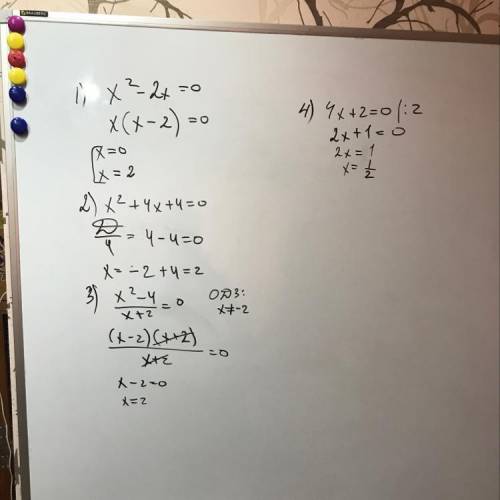 1) x² - 2x = 0
x(x - 2) = 0
[x = 0
x = 2
2) x² + 4x + 4 = 0
D/4 = 4 - 4 = 0
x = -2 + 4 = 2
3) (x² - 4)/(x + 2) = 0 ОДЗ:
x ≠ -2
(x - 2)(x + 2)/(x + 2) = 0
x - 2 = 0
x = 2
4) 4x + 2 = 0 | : 2
2x + 1 = 0
2x = 1
x = 1/2